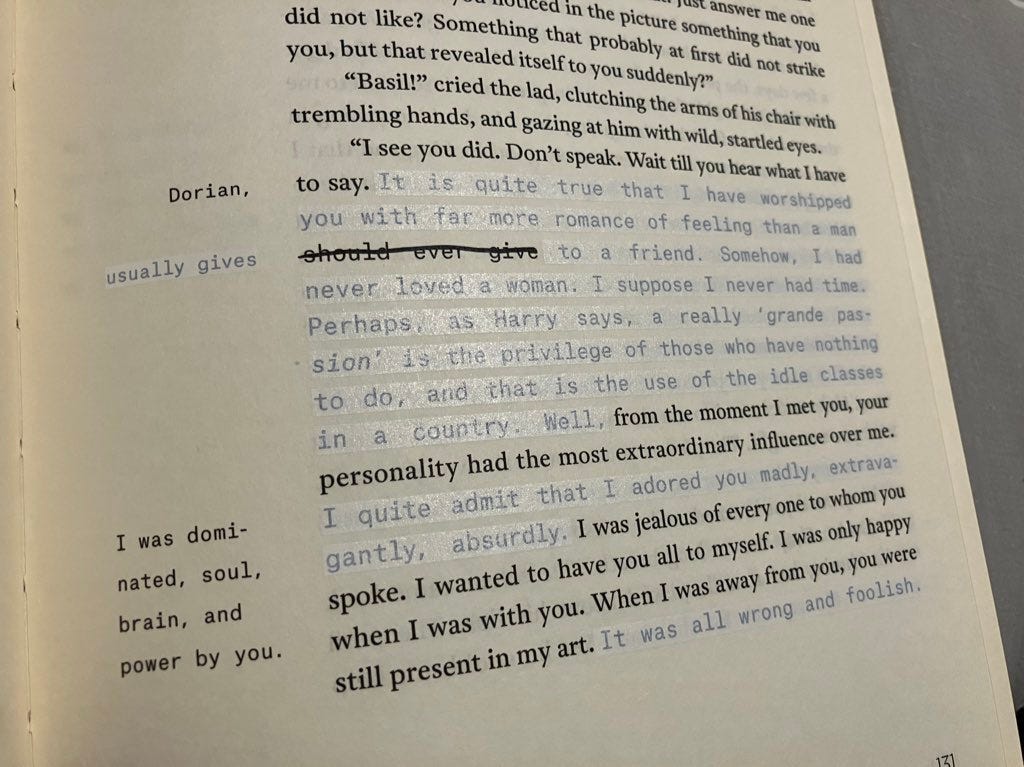 just answer me one
you noticed in the picture something that you
did not like? Something that probably at first did not strike
you, but that revealed itself to you suddenly?”
“Basil!” cried the lad, clutching the arms of his chair with
trembling hands, and gazing at him with wild, startled eyes.
“I see you did. Don’t speak. Wait till you hear what I have
Dorian,
to say. It is quite true that I have worshipped
you with far more romance of feeling than a man
usually gives
should ever give to a friend. Somehow, I had
never loved a woman. I suppose I never had time.
Perhaps, as Harry says, a really ‘grande pas-
sion’ is the privilege of those who have nothing
to do, and that is the use of the idle classes
in a country. Well, from the moment I met you, your
personality had the most extraordinary influence over me.
I quite admit that I adored you madly, extrava-
gantly, absurdly. I was jealous of every one to whom you
I was domi-
nated, soul,
brain, and
power by you.
spoke. I wanted to have you all to myself. I was only happy
when I was with you. When I was away from you, you were
still present in my art. It was all wrong and foolish.
131